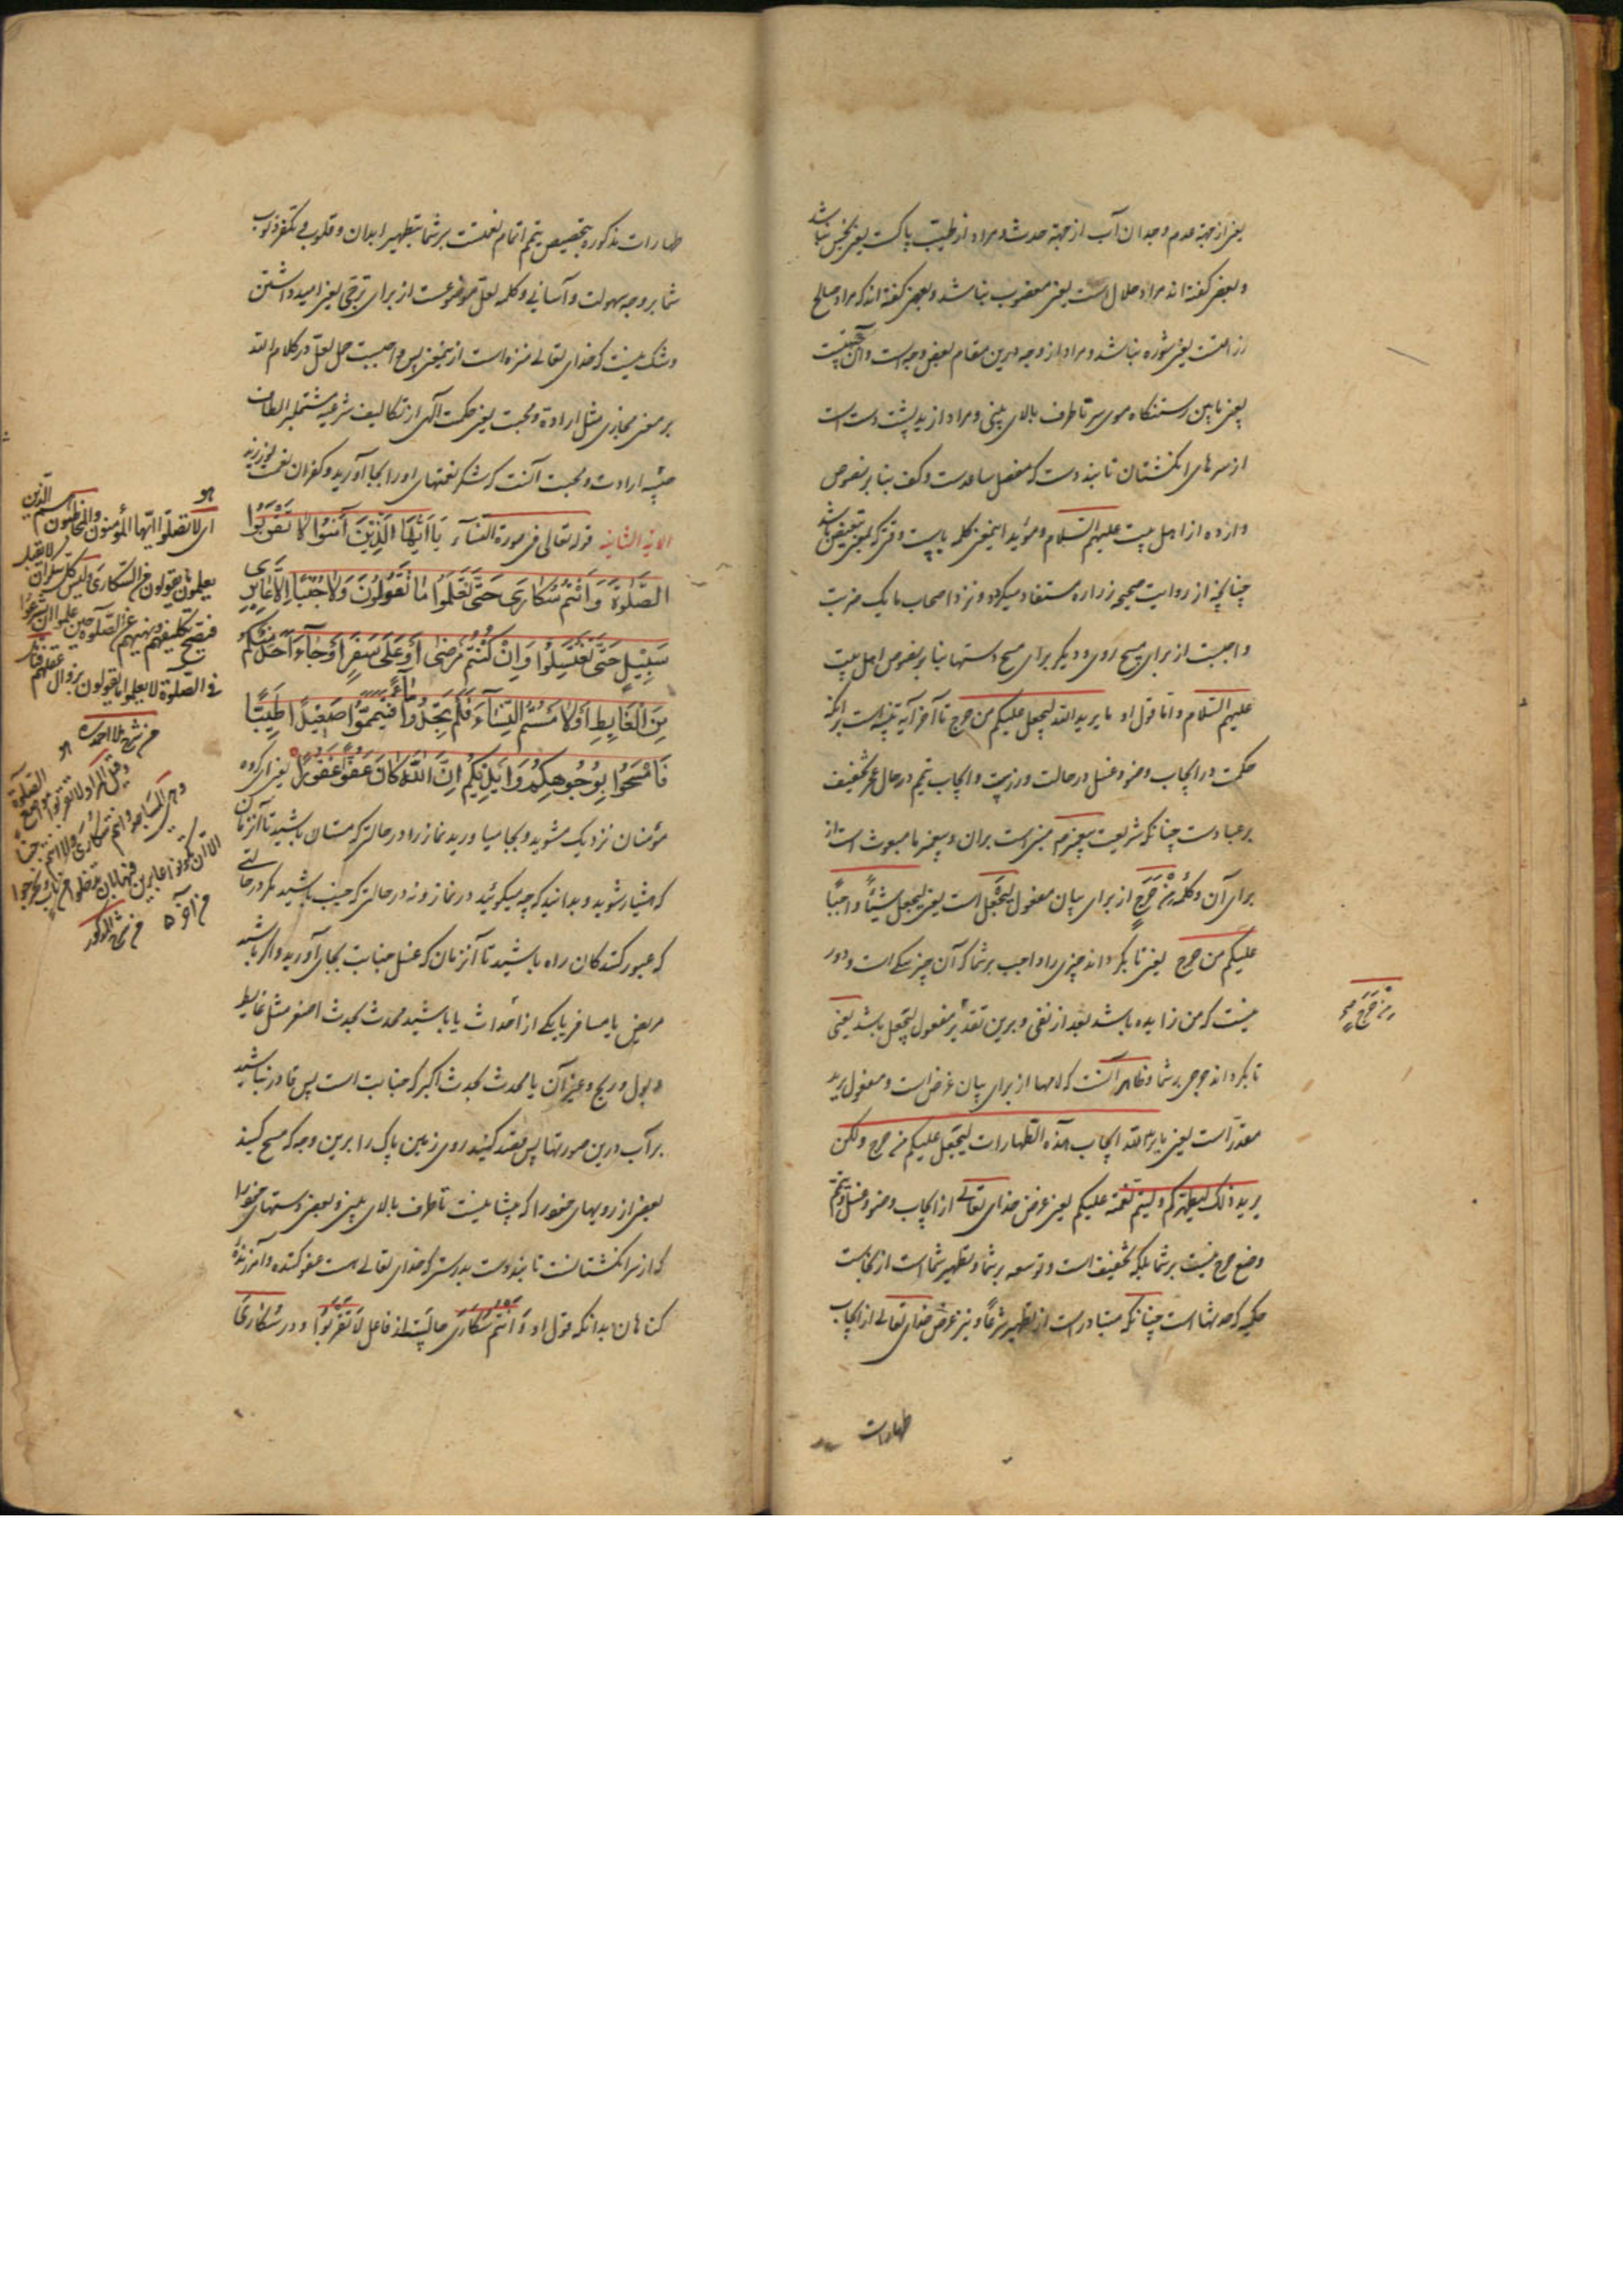 یعنی از جهة عدم وجدان آب از جهة حدث و مراد از طیب پاکست یعنی نجس نباشد
و بعضی گفته‌اند مراد حلال است یعنی مغضوب نباشد و بعضی گفته‌اند که مراد صالح
زراعتست یعنی شوره نباشد و مراد از وجه درین مقام بعض وجه است و آن
یعنی مابین رستنگاه موی سر تا طرف بالای بینی و مراد از ید پشت دست است
از سرهای انگشتان تا بند دست که مفصل ساعدست و کف بنا بر نصوص
وارده از اهل بیت علیهم السلام و مؤید اینمعنی کلمه باست وقتی که بمعنی تبعیض باشد
چنانچه از روایت صحیحه زراره مستفاد میگردد و نزد اصحاب ما یک ضربت
واجبست از برای مسح روی و دیگر برای مسح دستها بنا بر نصوص اهل بیت
علیهم السلام و اما قول او ما یرید الله لیجعل علیکم من حرج تا آخر آیه تنبیه است بر آنکه
حکمت در ایجاب وضو و غسل در حالت و ایجاب تیمم در حال عجز تخفیف
بر عبادست چنانکه شریعت پیغمبر ما مبنی است بران و پیغمبر ما مبعوث است از
برای آن و کلمه مِنْ حَرَجٍ از برای بیان مفعول لیجعل است یعنی لیجعل شیئًا واجبًا
علیکم من حرج یعنی تا بگرداند چیزی را واجب بر شما که آن چیز است و دور
نیست که من زایده باشد بعد از نفی و برین تقدیر مفعول لیجعل باشد یعنی
تا بگرداند حرجی بر شما و ظاهر آنست که لامها از برای بیان غرض است و مفعول یرید
مقدّر است یعنی ما یرید الله ایجاب هذه الطهارات لیجعل علیکم من حرج ولکن
یرید ذلک لیطهرکم و لیتم نعمته علیکم یعنی غرض خدای تعالی از ایجاب وضو و غسل و تیمم
وضع حرج نیست بر شما بلکه تخفیف است و توسعه بر شما و تطهیر شما است از نجاست
حکمیه که حدثها است چنانکه متبادر است از تطهیر شرعًا و نیز غرض خدای تعالی از ایجاب
طهارات
مِنْ حَرَجٍ
طهارات مذکوره بتخصیص تیمم اتمام نعمتست بر شما بتطهیر ابدان و قلوب و تکفیر ذنوب
شما بر وجه سهولت و آسانی و کلمه لعل موضوعست از برای ترجی یعنی امید داشتن
و شک نیست که خدای تعالی منزه است از اینمعنی پس واجبست حمل لعل در کلام الله
بر معنی مجازی مثل ارادة و محبت یعنی حکمت الهی از تکالیف شرعیه مشتمله بر الطاف
ارادت و محبت آنست که شکر نعمتهای او را بجا آورید و کفران نعمت نورزید
الآیة الثانیه قوله تعالی فی سورة النساء یَا اَیُّهَا الَّذِینَ آمَنُوا لَا تَقْرَبُوا
الصَّلٰوةَ وَاَنْتُمْ سُکَارَی حَتَّی تَعْلَمُوا مَا تَقُولُونَ وَلَا جُنُبًا اِلَّا عَابِرِی
سَبِیلٍ حَتَّی تَغْتَسِلُوا وَاِنْ کُنْتُمْ مَرْضَی اَوْ عَلَی سَفَرٍ اَوْ جَاءَ اَحَدٌ مِنْکُمْ
مِنَ الْغَایِطِ اَوْ لَامَسْتُمُ النِّسَاءَ فَلَمْ تَجِدُوا مَاءً فَتَیَمَّمُوا صَعِیدًا طَیِّبًا
فَامْسَحُوا بِوُجُوهِکُمْ وَاَیْدِیکُمْ اِنَّ اللّٰهَ کَانَ عَفُوًّا غَفُورًا یعنی ای گروه
مؤمنان نزدیک مشوید و بجا میاورید نماز را در حالتی که مستان باشید تا آنزمان
که هشیار شوید و بدانید که چه میگوئید در نماز و نه در حالتی که جنب باشید مگر در حالتی
که عبور کنندگان راه باشید تا آنزمان که غسل جنابت بجای آورید و اگر باشید
مریض یا مسافر یا یکی از احداث یا باشید محدث بحدث اصغر مثل غایط
و بول و ریح و غیر آن یا محدث بحدث اکبر که جنابت است پس قادر نباشید
بر آب درین صورتها پس قصد کنید روی زمین پاک را برین وجه که مسح کنید
بعضی از رویهای خود را که پیشانیست تا طرف بالای بینی و بعضی دستهای خود را
که از سر انگشتانست تا بند دست بدرستی که خدای تعالی هست عفو کننده و آمرزندهٔ
گناهان بدانکه قول او وَ اَنْتُمْ سُکَارَی حالیست از فاعل لَا تَقْرَبُوا و در سُکَارَی
ای لا تصلوا ایها المؤمنون والمخاطبون هم الذین
یعلمون ما یقولون من السکاری
فیصح تکلیفهم ونهیهم عن الصلوة حین علموا
فی الصلوة لا یعلموا ما یقولون بزوال عقلهم
من شرح ملا احمد
وقیل المراد لا تقربوا مواضع الصلوة
وهی المساجد وانتم سکاری ولا انتم جنبا
الا ان تکونوا عابرین فیها بان تدخلوا من باب وتخرجوا
من آخر